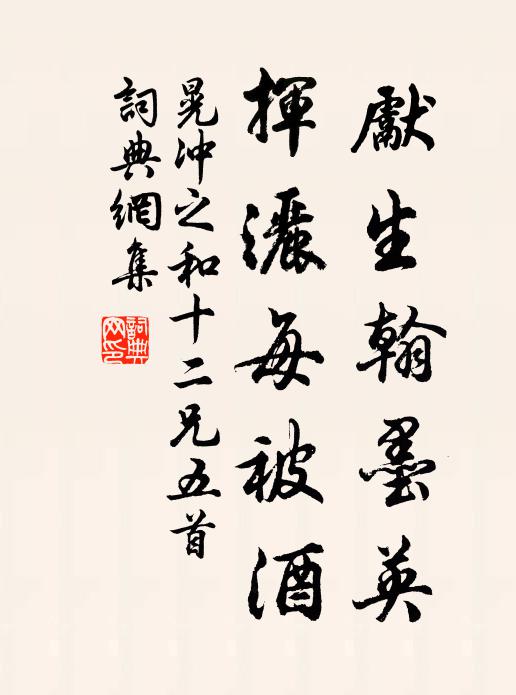 獻生翰墨英
揮灑每被酒
晁冲之和十二兄五首
詞典網集
詞典網印